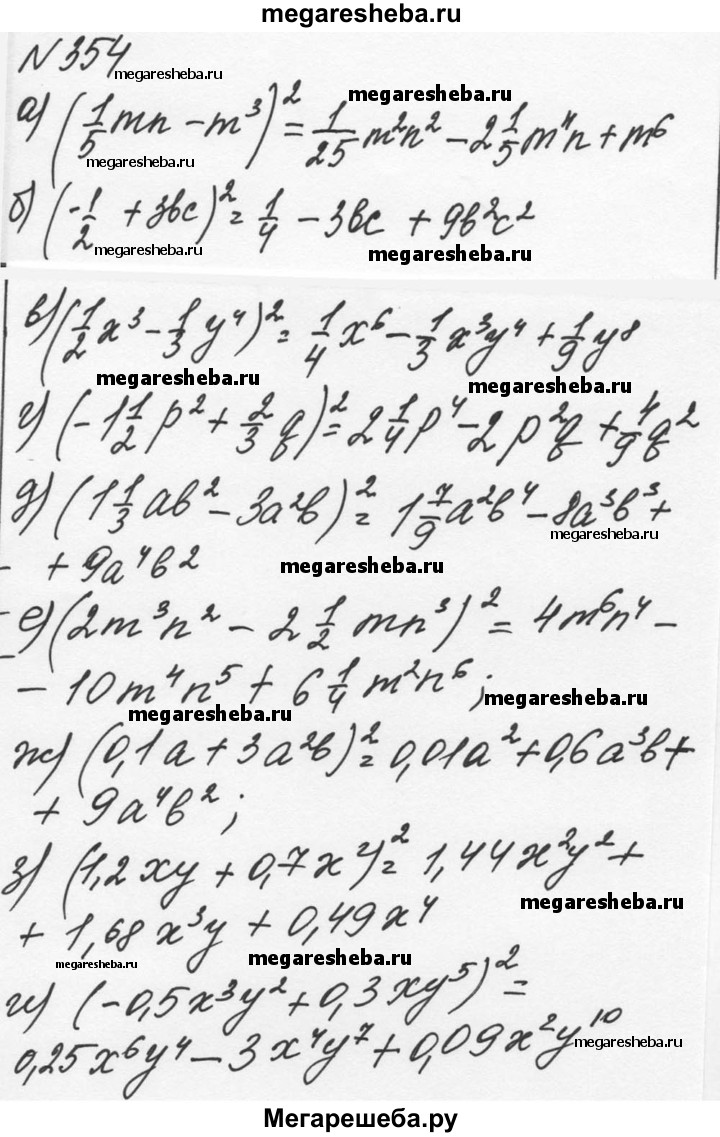 megaresheba.ru
N 354
megaresheba.ru
megaresheba.ru
а) (1/5 mn − m³)² = 1/25 m²n² − 2 1/5 m⁴n + m⁶
megaresheba.ru
б) (−1/2 + 3bc)² = 1/4 − 3bc + 9b²c²
megaresheba.ru megaresheba.ru
в) (1/2 x³ − 1/3 y⁴)² = 1/4 x⁶ − 1/3 x³y⁴ + 1/9 y⁸
megaresheba.ru megaresheba.ru
г) (−1 1/2 p² + 2/3 q)² = 2 1/4 p⁴ − 2p²q + 4/9 q²
д) (1 1/3 ab² − 3a²b)² = 1 7/9 a²b⁴ − 8a³b³ +
megaresheba.ru
+ 9a⁴b² megaresheba.ru
е) (2m³n² − 2 1/2 mn³)² = 4m⁶n⁴ −
− 10m⁴n⁵ + 6 1/4 m²n⁶;
megaresheba.ru
megaresheba.ru
ж) (0,1a + 3a²b)² = 0,01a² + 0,6a³b +
+ 9a⁴b²;
з) (1,2xy + 0,7x²)² = 1,44x²y² +
+ 1,68x³y + 0,49x⁴
megaresheba.ru
megaresheba.ru megaresheba.ru
и) (−0,5x³y² + 0,3xy⁵)² =
0,25x⁶y⁴ − 3x⁴y⁷ + 0,09x²y¹⁰
megaresheba.ru
Мегарешеба.ру